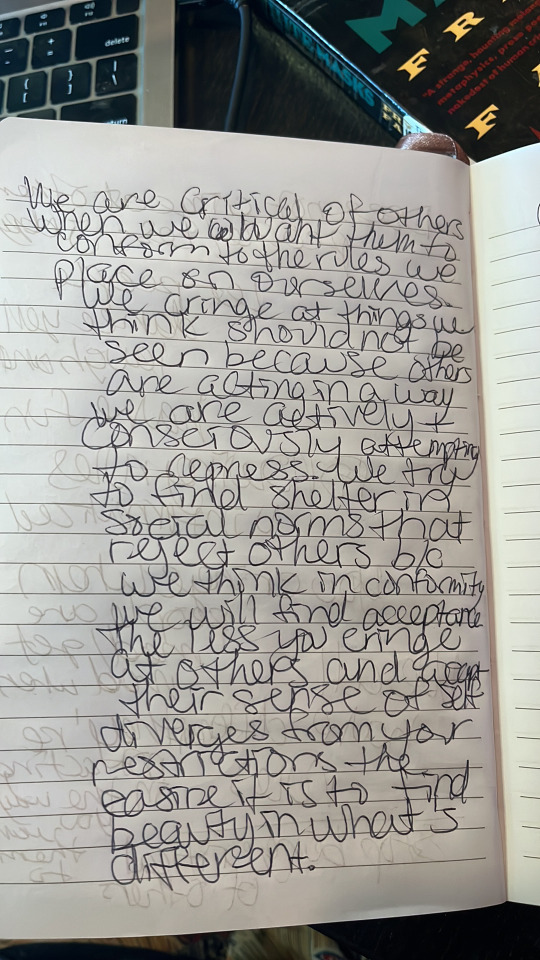 delete
return
MASKS
M
FR
"A strange, haunting mélan
metaphysics, prose po
nakedest of human
F
We are critical of others
when we want them to
conform to the rules we
place on ourselves.
We cringe at things we
think should not be
seen because others
are acting in a way
we are actively +
consciously attempting
to repress. We try
to find shelter in
social norms that
reject others b/c
we think in conformity
we will find acceptance
the less you cringe
at others and accept
their sense of self
diverges from your
restrictions the
easire it is to find
beauty in what's
different.